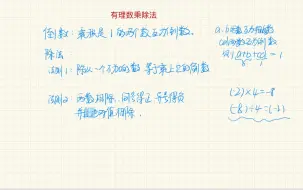 有理数乘除法
倒数：乘积是1的两个数互为倒数。
a.b互为倒数
除法
法则1：除以一个不为0的数 等于乘上它的倒数
法则2 两数相除，同号得正，异号得负
并把绝对值相除.
(-2)×4=-8
(-8)÷4=(-2)